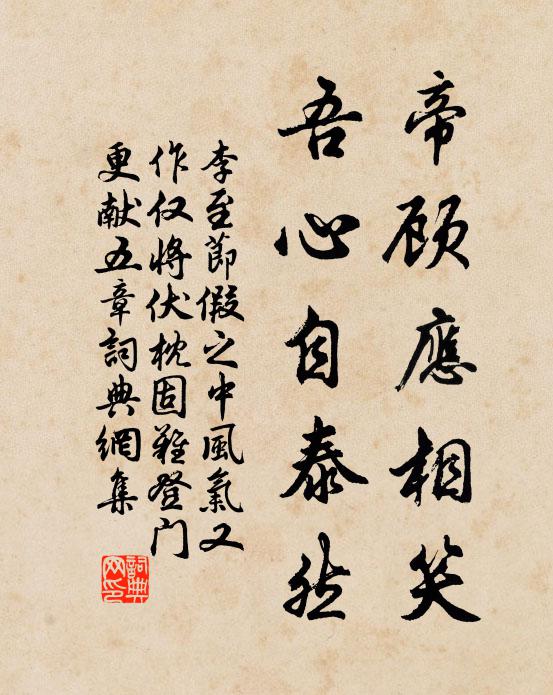 帝顾應相笑
吾心自泰然
李至節假之中風氣又
作仅將伏枕固難登门
更献五章詞典網集
詞典
网印